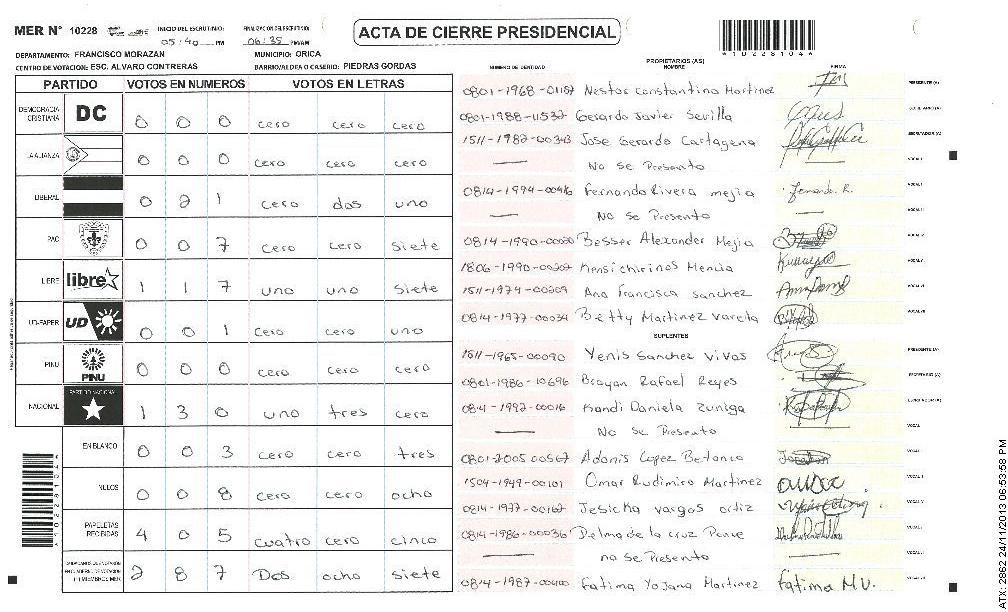 MER N° 10228 INICIO DEL ESCRUTINIO: 05:40 PM FINALIZACION DEL ESCRUTINIO: 06:35 PM/AM
ACTA DE CIERRE PRESIDENCIAL
*10228104*
DEPARTAMENTO: FRANCISCO MORAZAN MUNICIPIO: ORICA
CENTRO DE VOTACION: ESC. ALVARO CONTRERAS BARRIO/ALDEA O CASERIO: PIEDRAS GORDAS
PARTIDO VOTOS EN NUMEROS VOTOS EN LETRAS
DEMOCRACIA CRISTIANA DC 0 0 0 cero cero cero
LA ALIANZA 0 0 0 cero cero cero
LIBERAL 0 2 1 cero dos uno
PAC 0 0 7 cero cero siete
LIBRE libre 1 1 7 uno uno siete
UD-FAPER UD 0 0 1 cero cero uno
PINU PINU 0 0 0 cero cero cero
NACIONAL PARTIDO NACIONAL 1 3 0 uno tres cero
EN BLANCO 0 0 3 cero cero tres
NULOS 0 0 8 cero cero ocho
PAPELETAS RECIBIDAS 4 0 5 cuatro cero cinco
CIUDADANOS QUE VOTARON EN CUADERNO DE VOTACION 2 8 7 Dos ocho siete
PROPIETARIOS (AS)
NUMERO DE IDENTIDAD NOMBRE FIRMA
Nestor Constantino Martinez PRESIDENTE (A)
0801-1988-11537 Gerardo Javier Sevilla SECRETARIO (A)
1511-1982-00343 Jose Gerardo Cartagena ESCRUTADOR (A)
No se Presento VOCAL I
Fernando Rivera mejia Fernando R. VOCAL II
No se Presento VOCAL III
Besser Alexander Mejia VOCAL IV
Mencia VOCAL V
1511-1974-00209 Ana Francisca sanchez VOCAL VI
0814-1977-00034 Betty Martinez varela VOCAL VII
SUPLENTES
1511-1965-00090 Yenis Sanchez vivas PRESIDENTE (A)
0801-1986-10696 Brayan Rafael Reyes SECRETARIO (A)
Kandi Daniela Zuniga ESCRUTADOR (A)
No se Presento VOCAL I
0801-2005-00567 Adonis Lopez Betanco VOCAL II
1504-1949-00101 Omar Rudimiro Martinez VOCAL III
0814-1977-00162 Jesicka vargas ortiz VOCAL IV
0814-1986-00036 Delma de la cruz Ponce VOCAL V
no se Presento VOCAL VI
0814-1987-00400 Fatima Yojana Martinez Fatima M.V. VOCAL VII
ATX: 2962 24/11/2013 06:53:58 PM